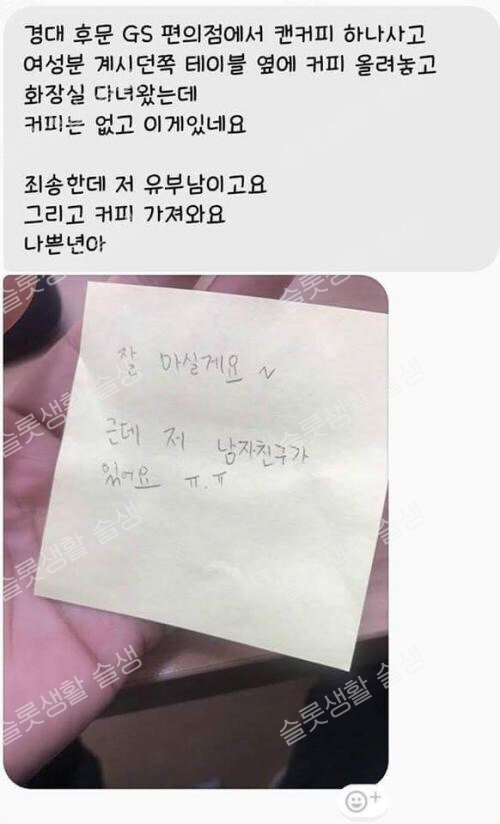 경대 후문 GS 편의점에서 캔커피 하나사고
여성분 계시던쪽 테이블 옆에 커피 올려놓고
화장실 다녀왔는데
커피는 없고 이게있네요
죄송한데 저 유부남이고요
그리고 커피 가져와요
나쁜년아
잘 마실게요 ~
근데 저 남자친구가
있어요 ㅠ.ㅠ
슬롯생활 슬생
슬롯생활 슬생
슬롯생활 슬생
슬롯생활 슬생
슬롯생활 슬생
슬롯생활 슬생